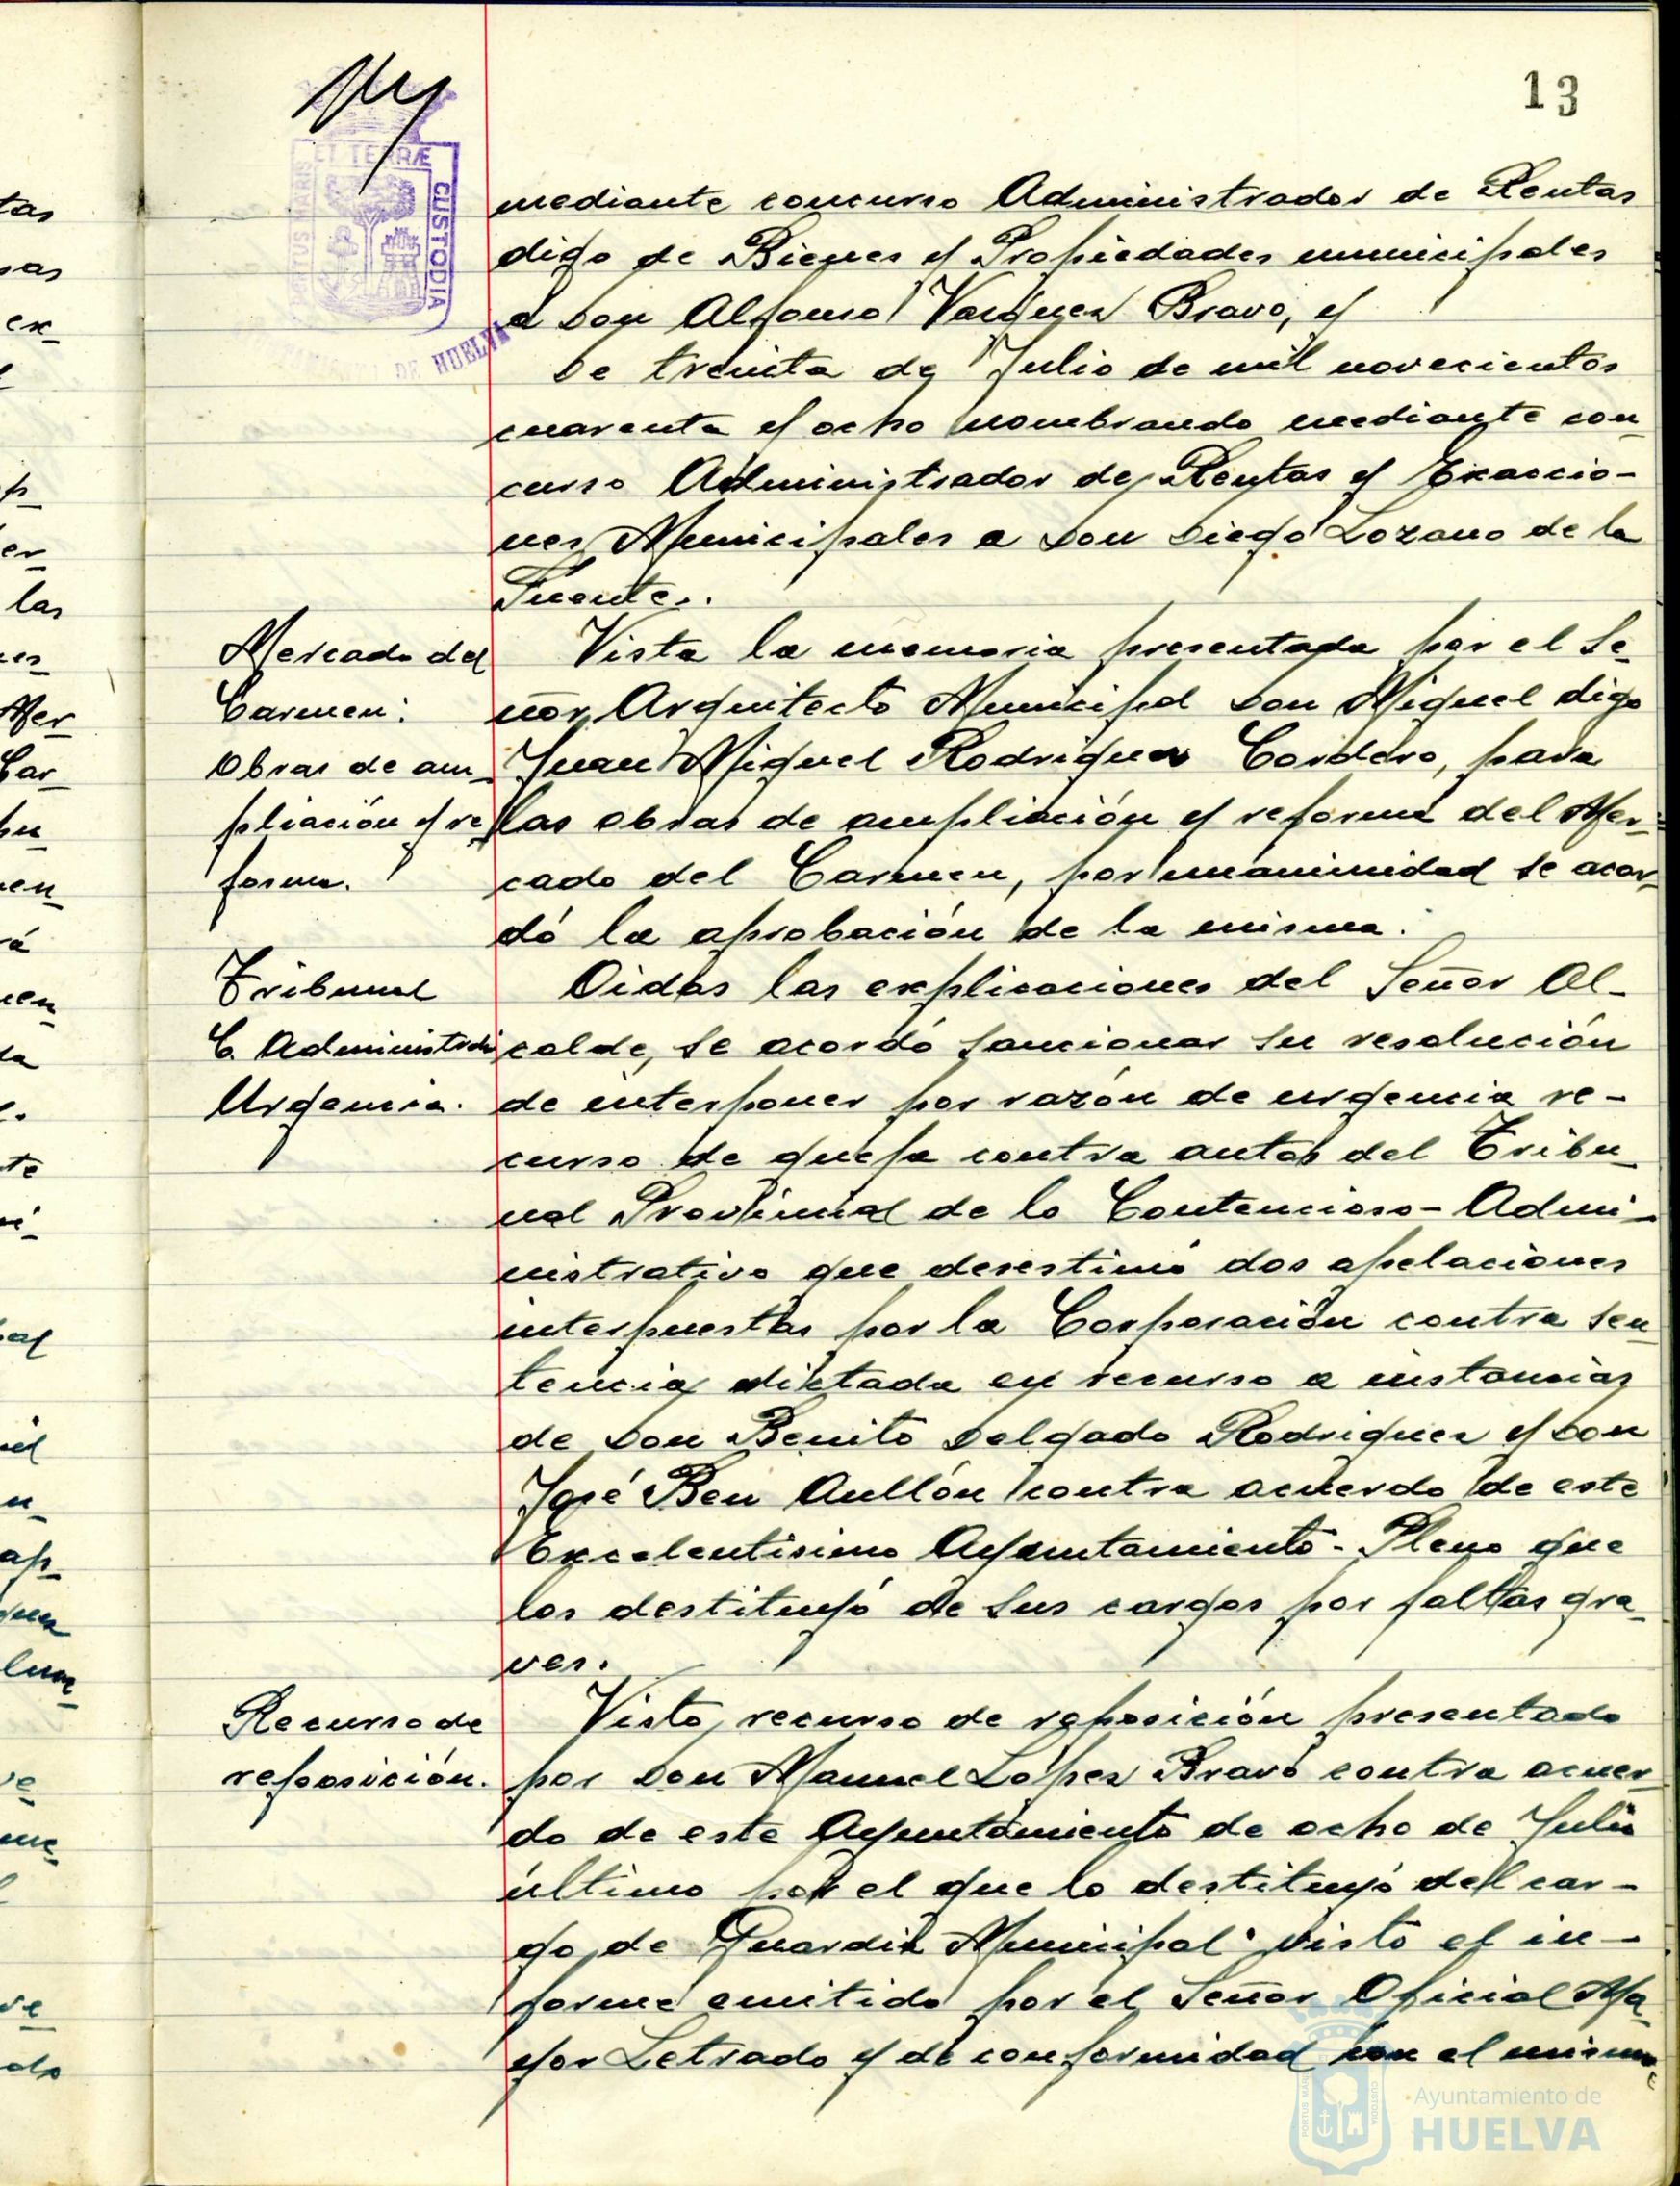 13
ET TERRÆ
CUSTODIA
PORTUS MARIS
DE HUELVA
mediante concurso Administrador de Rentas
digo de Bienes y Propiedades municipales
a Don Alfonso Vazquez Bravo, y
De treinta de Julio de mil novecientos
cuarenta y ocho nombrando mediante con-
curso Administrador de Rentas y Exaccio-
nes Municipales a Don Diego Lozano de la
Fuente.
Mercado del
Carmen:
Obras de am-
pliación y re
forma.
Vista la memoria presentada por el Se-
ñor Arquitecto Municipal Don Miguel digo
Juan Miguel Rodriguez Cordero, para
las obras de ampliación y reforma del Mer-
cado del Carmen, por unanimidad se acor-
dó la aprobación de la misma.
Tribunal
C. Administrativo
Urgencia.
Oidas las explicaciones del Señor Al-
calde, se acordó sancionar su resolución
de interponer por razón de urgencia re-
curso de queja contra autos del Tribu-
nal Provincial de lo Contencioso-Admi-
nistrativo que desestimó dos apelaciones
interpuestas por la Corporación contra sen-
tencia dictada en recurso a instancias
de Don Benito Delgado Rodriguez y Don
José Ben Aullón contra acuerdo de este
Excelentisimo Ayuntamiento-Pleno que
los destituyó de sus cargos por faltas gra-
ves.
Recurso de
reposición.
Visto, recurso de reposición presentado
por Don Manuel López Bravo contra acuer-
do de este Ayuntamiento de ocho de Julio
último por el que lo destituyó del car-
go de Guardia Municipal. Visto el in-
forme emitido por el Señor Oficial Ma-
yor Letrado y de conformidad con el mismo,
Ayuntamiento de
HUELVA